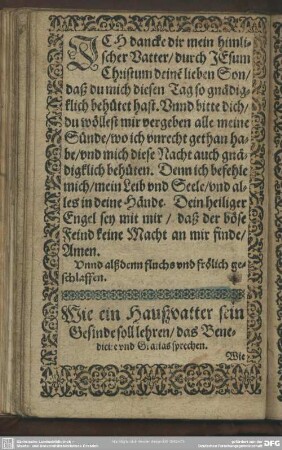 ICH dancke dir mein himli-
scher Vatter/ durch JEsum
Christum deinē lieben Son/
daß du mich diesen Tag so gnädig-
klich behütet hast. Vnnd bitte dich/
du wöllest mir vergeben alle meine
Sünde/ wo ich vnrecht gethan ha-
be/ vnd mich diese Nacht auch gnä-
digklich behüten. Denn ich befehle
mich/ mein Leib vnd Seele/ vnd al-
les in deine Hände. Dein heiliger
Engel sey mit mir / daß der böse
Feind keine Macht an mir finde/
Amen.
Vnnd alßdenn fluchs vnd frölich ge-
schlaffen.
Wie ein Haußvatter sein
Gesinde soll lehren/ das Bene-
dicite vnd Gratias sprechen.
Wie
DFG